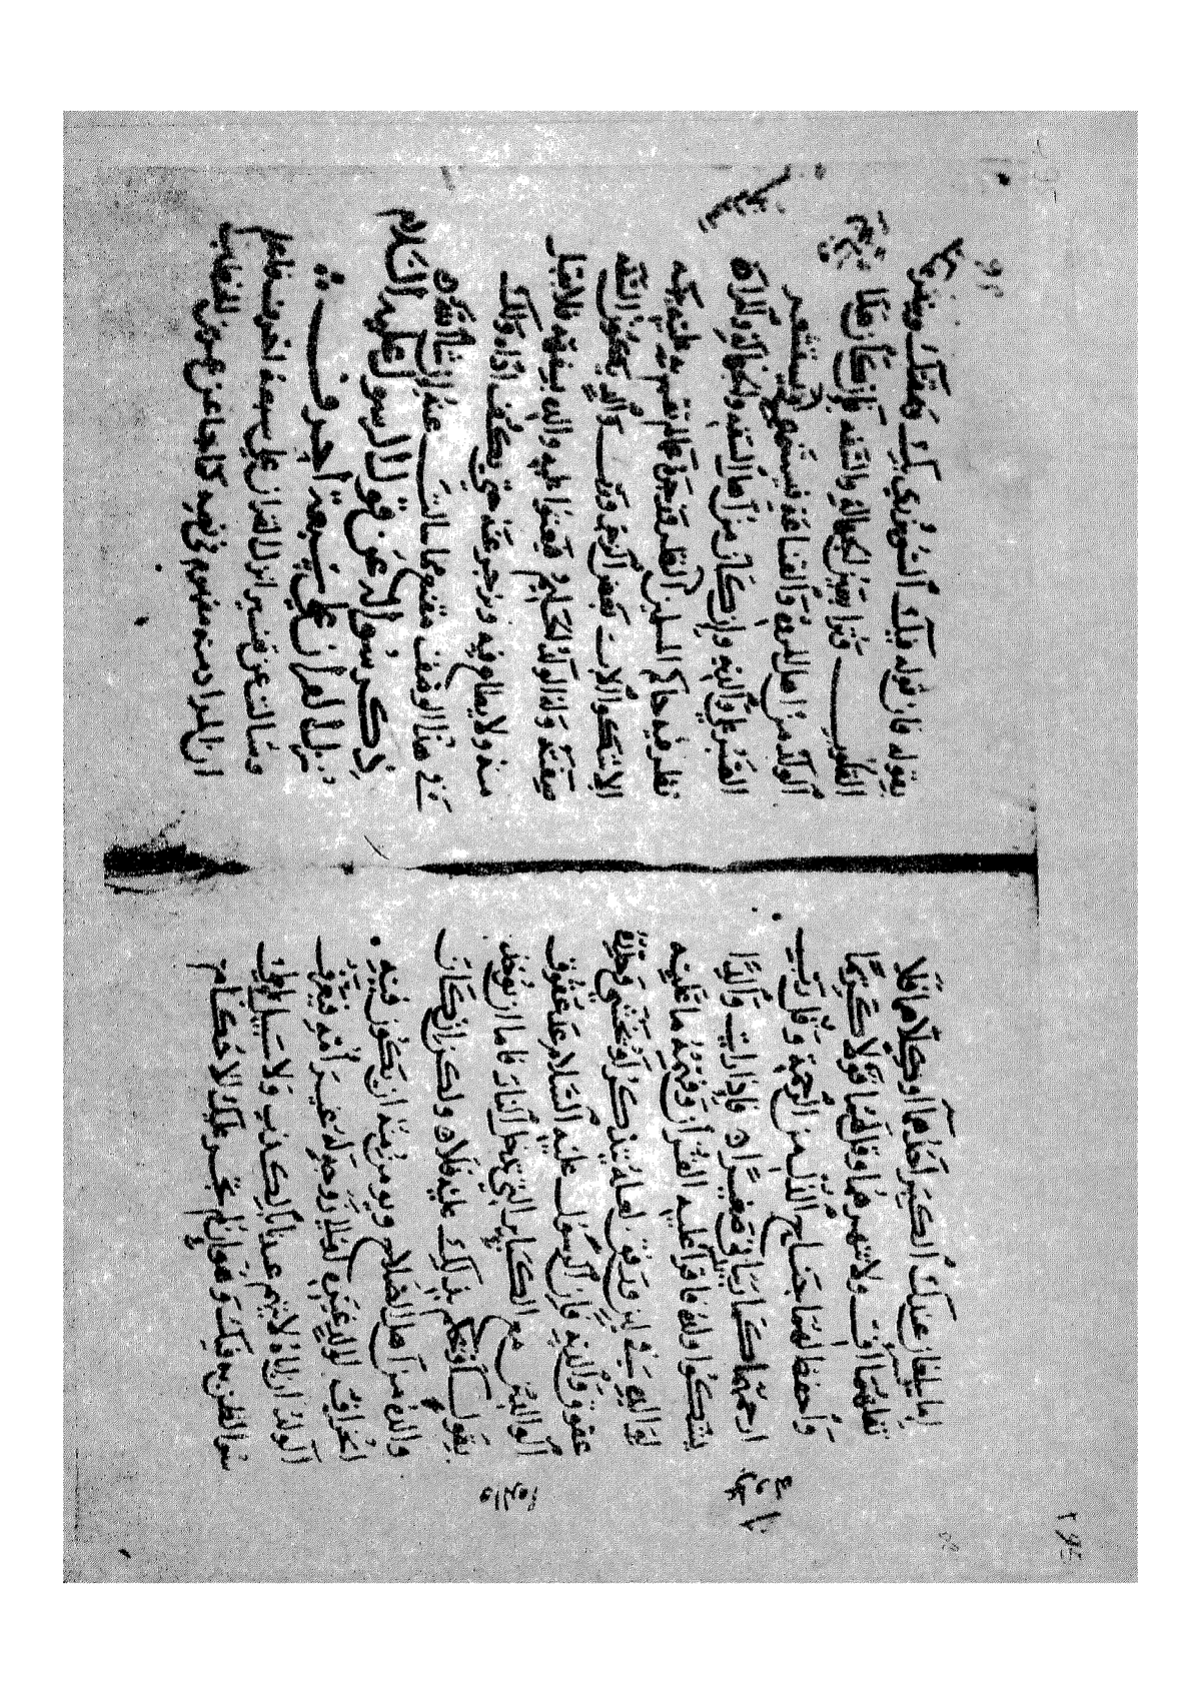 اما يبلغان عندك الكبر احدهما او كلاهما فلا
تقل لهما اف ولا تنهرهما وقل لهما قولا كريما
واخفض لهما جناح الذل من الرحمة وقل رب
ارحمهما كما ربياني صغيرا فاذا رايت والدا
يشكوا ولده فاقرا عليه القران وفهمه ما عليه
لوالديه في لين ورفق لعله يتذكر او يخشى وحذره
عقوق والديه فان الرسول عليه السلام عد عقوق
الوالدين مع الكباير التي تدخل النار فاما ان يوخذ
بقول او يحكم بذلك عليه فلا ولكن ان كان
والده من اهل الصلاح ويومن منه ان يكون فيه
انحراف لولد غيره لزوجة له غير امه فيعرف
الولد ان اباه لا يتهم عندنا بالكذب ولا سبيل الى
سو الظن به فيك وهو ان لم تجر عليك الاحكام
بقوله فان قوله فيك ويمقتك وينفر عنك
القلوب فترا بعين الجهالة والسفه فان كان هذا
الولد من اهل المروة والقناعة فيستحي ويستشعر
الصبر على والديه وان كان من اهل السفه والجهالة
نظر فيه حاكم المسلمين النظر ما لم يقم به عليه بينه
الا شكوا الاب الزجر ورب والد يكون
صفته الولد الحليم فيعتوا عليه والده بسفهه فلا يقبل
منه ولا يطاع فيه ويزجر عنه حتى يكف اذاه وذلك
على هذا الوصف مما سالت عنه ان شا الله
ذكر سوالك عن قول الرسول عليه السلام
نزل القران على سبعة احرف
وسالت عن تفسير نزل القران على سبعة احرف فاعلم
ان المراد منه مفهوم في نصه كما جا عن عمر بن الخطاب